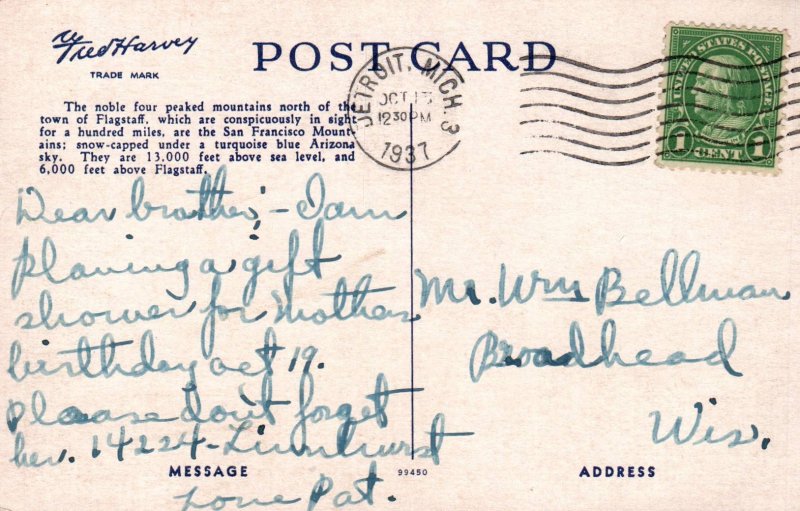 Fred Harvey
TRADE MARK
POST CARD
The noble four peaked mountains north of the
town of Flagstaff, which are conspicuously in sight
for a hundred miles, are the San Francisco Mount-
ains; snow-capped under a turquoise blue Arizona
sky. They are 13,000 feet above sea level, and
6,000 feet above Flagstaff.
DETROIT, MICH. 3
OCT 13
12 30 PM
1937
UNITED STATES POSTAGE
1 CENT 1
Dear brother, - I am
planing a gift
shower for Mothers
birthday oct 19.
Please dont forget
her. 14224 - Linnhurst
Love Pat.
Mr. Wm Bellman
Broadhead
Wis.
MESSAGE
99450
ADDRESS